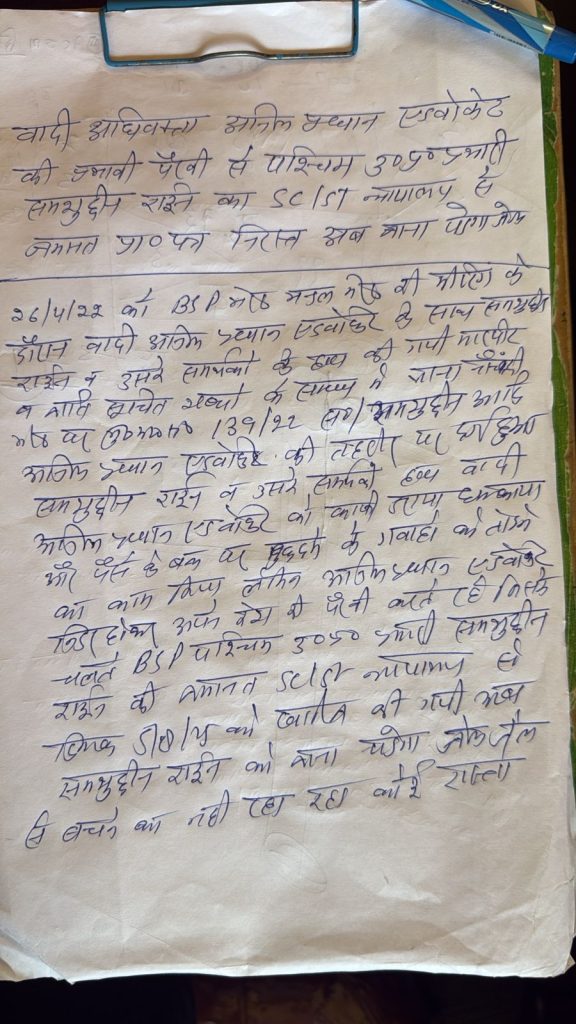 वादी अधिवक्ता अनिल प्रधान एडवोकेट
की प्रभावी पैरवी से पश्चिम उ०प्र० प्रभारी
समसुद्दीन राईन का SC/ST न्यायालय से
जमानत प्रा० पत्र निरस्त अब जाना पडेगा जेल
26/4/22 को BSP मेरठ मण्डल मेरठ की मीटिंग के
दौरान वादी अनिल प्रधान एडवोकेट के साथ समसुद्दीन
राईन व उसके समर्थकों के द्वारा की गयी मारपीट
व जाति सूचित शब्दों के सम्बन्ध में थाना
मेरठ पर 139/22 समसुद्दीन आदि
अनिल प्रधान एडवोकेट की तहरीर पर
समसुद्दीन राईन व उसके समर्थकों द्वारा वादी
अनिल प्रधान एडवोकेट को काफी डराया धमकाया
और पैसे के बल पर मुकदमे के गवाहों को तोडने
का काम किया लेकिन अनिल प्रधान एडवोकेट
निडर होकर अपने केस की पैरवी करते रहे जिसके
चलते BSP पश्चिम उ०प्र० प्रभारी समसुद्दीन
राईन की जमानत SC/ST न्यायालय से
दिनांक को खारिज की गयी अब
समसुद्दीन राईन को जाना पडेगा जेल जेल
से बचने का नही रहा रहा कोई रास्ता